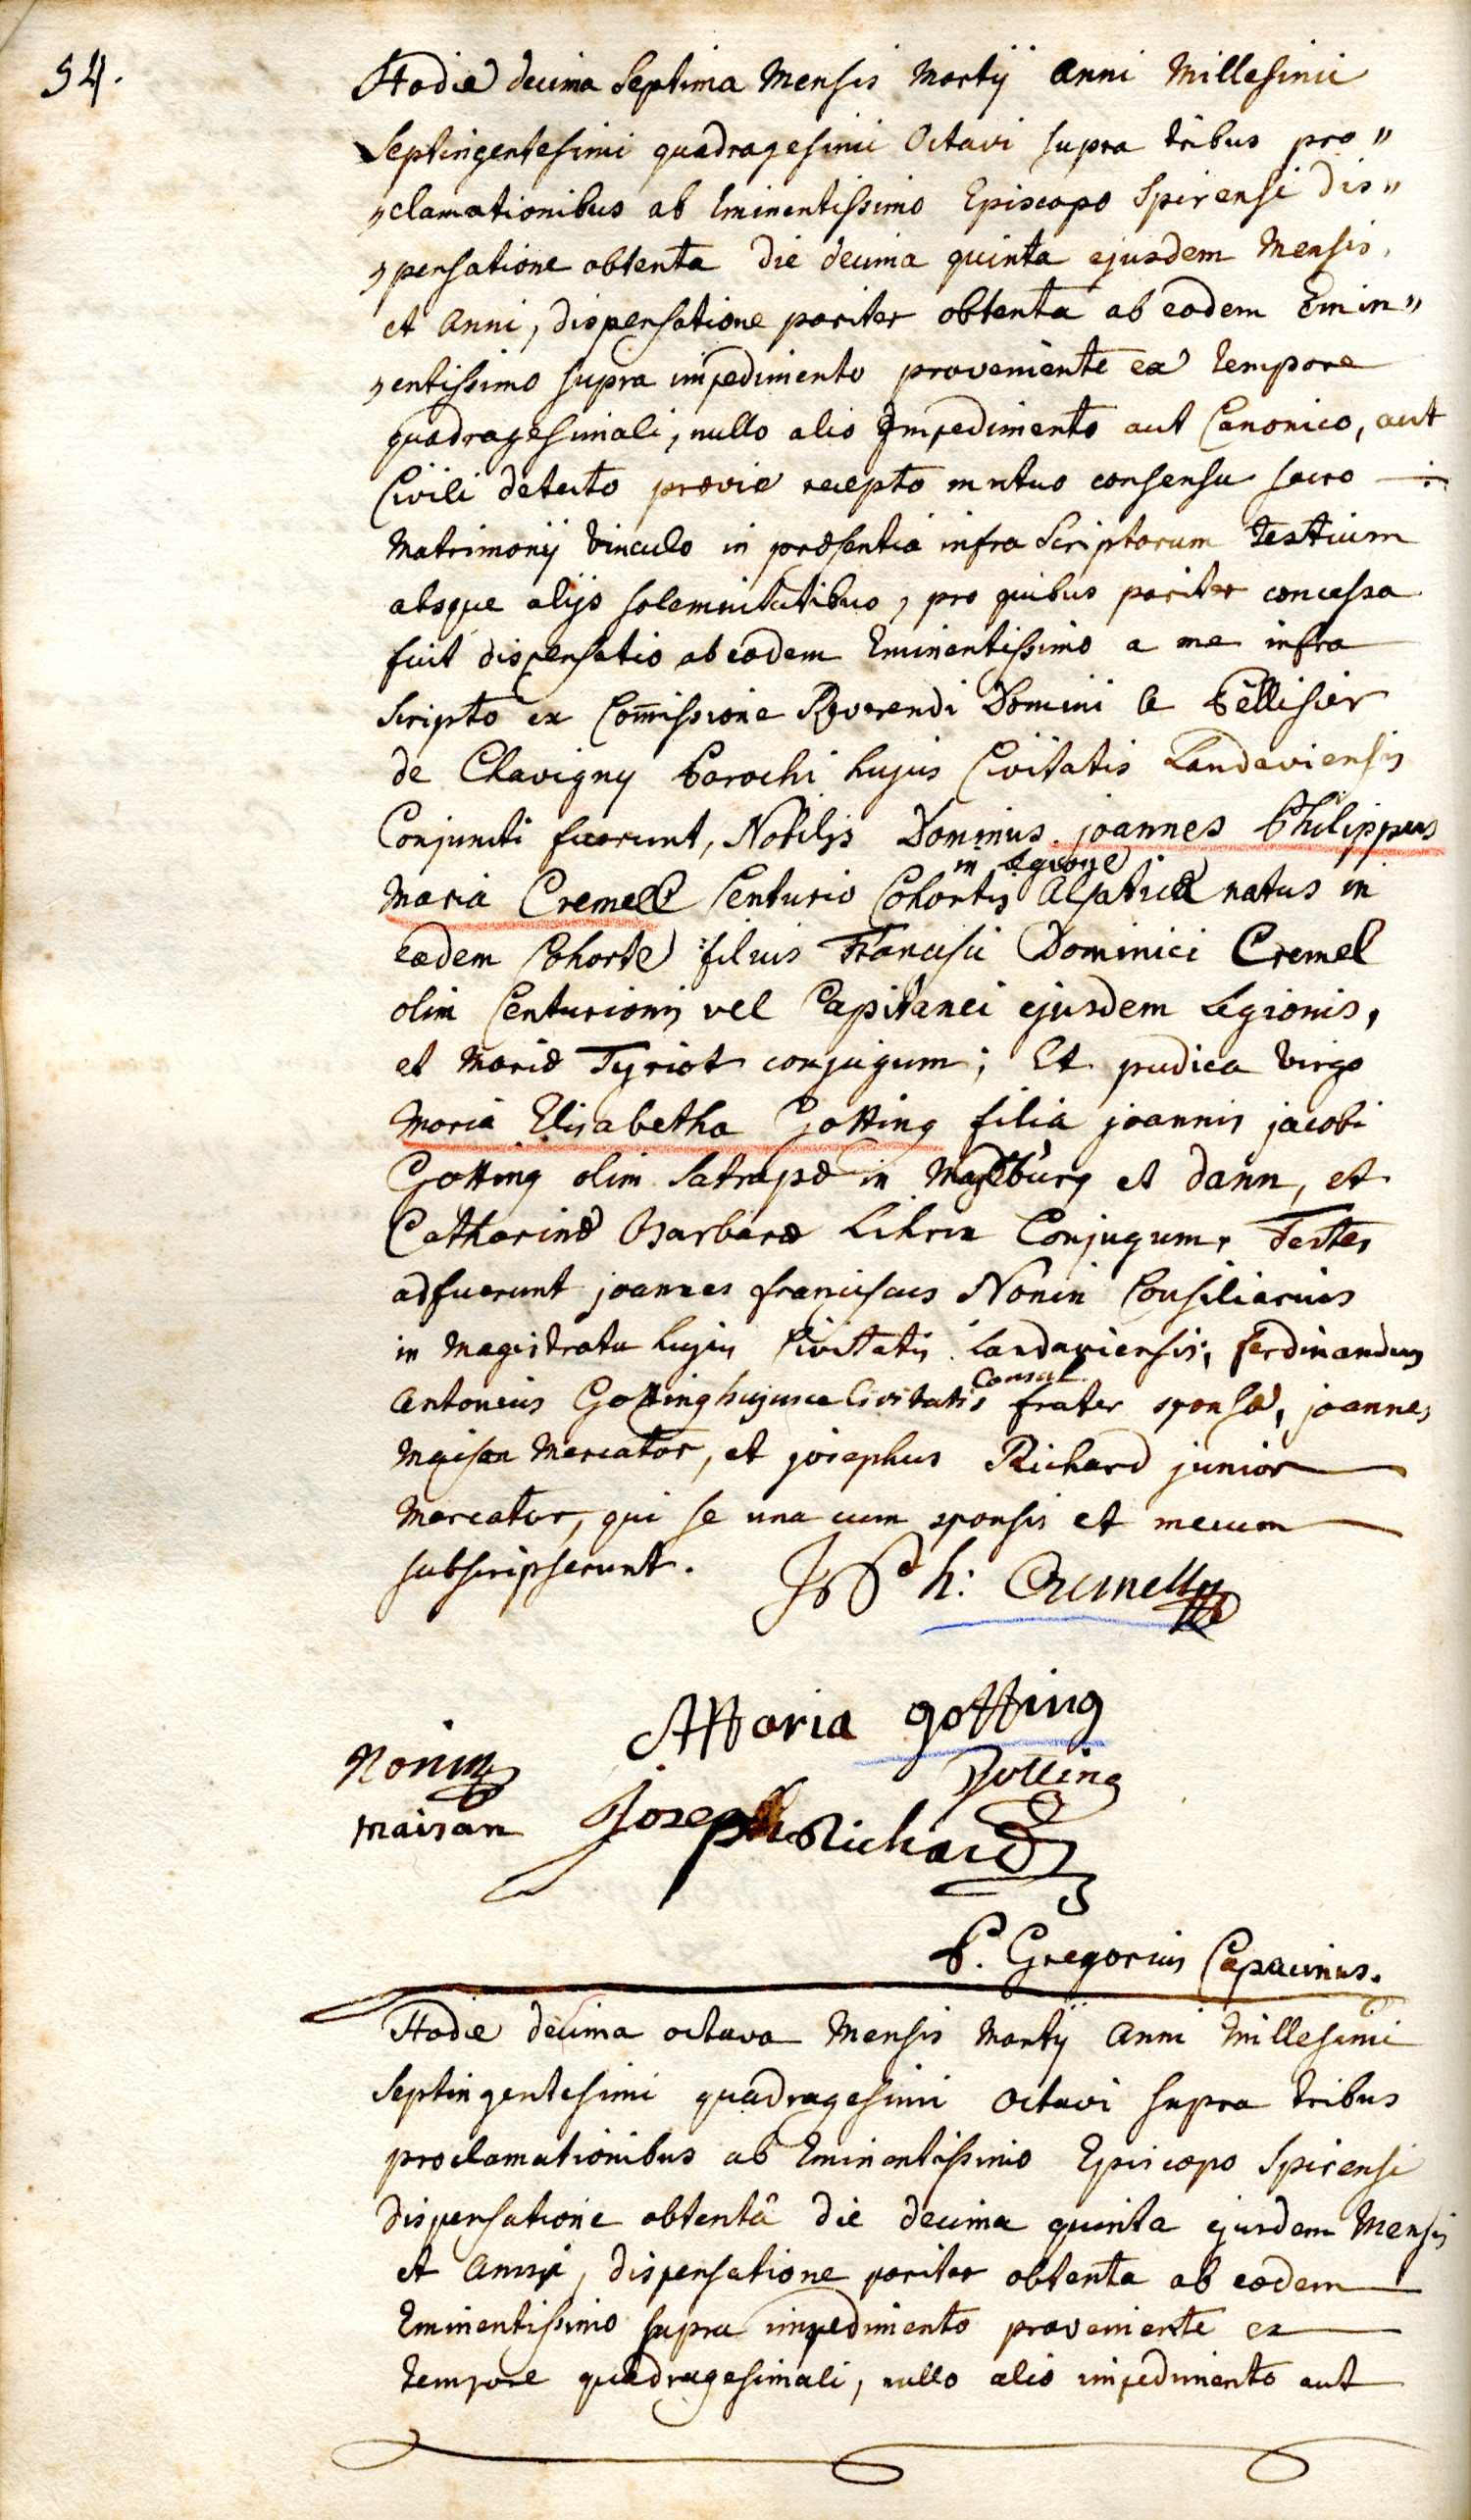 54.
Hodie decima Septima Mensis Martij anni Millesimi
Septingentesimi quadragesimi Octavi supra tribus pro"
"clamationibus ab Eminentissimo Episcopo Spirensi dis"
"pensatione obtenta die decima quinta ejusdem Mensis,
et anni, dispensatione pariter obtenta ab eodem Emin"
"entissimo supra impedimento proveniente ex tempore
quadragesimali, nullo alio Impedimento aut Canonico, aut
Civili detecto prævie recepto mutuo consensu sacro
Matrimonij Vinculo in præsentia infra Scriptorum Testium
absque alijs solemnitatibus, pro quibus pariter concessa
fuit dispensatio ab eodem Eminentissimo a me infra
Scripto ex Com̄issione Reverendi Domini le Pellisier
de Chavigny Parochi hujus Civitatis Landaviensis
Conjuncti fuerunt, Nobilis Dominus joannes Philippus
in legione
Maria Cremell Centurio Cohortis Alsaticæ natus in
eadem Cohorte filius Francisci Dominici Cremel
olim Centurionis vel Capitanei ejusdem Legionis,
et Mariæ Tyriot conjugum; Et pudica Virgo
Maria Elisabetha Gotting filia joannis jacobi
Gotting olim Satrapæ in et dann, et
Catharinæ Barbaræ Conjugum. Testes
adfuerunt joannes franciscus Nonin Consiliarius
in Magistratu hujus Civitatis Landaviensis, ferdinandus
Consul
antonius Gotting hujusce Civitatis frater sponsæ, joannes
Maison Mercator, et josephus Richard junior
Mercator, qui se una cum sponsis et mecum
subscripserunt.
h: Cremelly
Maria gotting
Nonin
Gotting
maison
Joseph Richard
P. Gregorius Capucinus.
Hodie decima octava Mensis Martij Anni Millesimi
Septingentesimi quadragesimi Octavi supra tribus
proclamationibus ab Eminentissimo Episcopo Spirensi
dispensatione obtentâ die decima quinta ejusdem Mensis
et Anni, dispensatione pariter obtenta ab eodem
Eminentissimo supra impedimento proveniente ex
tempore quadragesimali, nullo alio impedimento aut